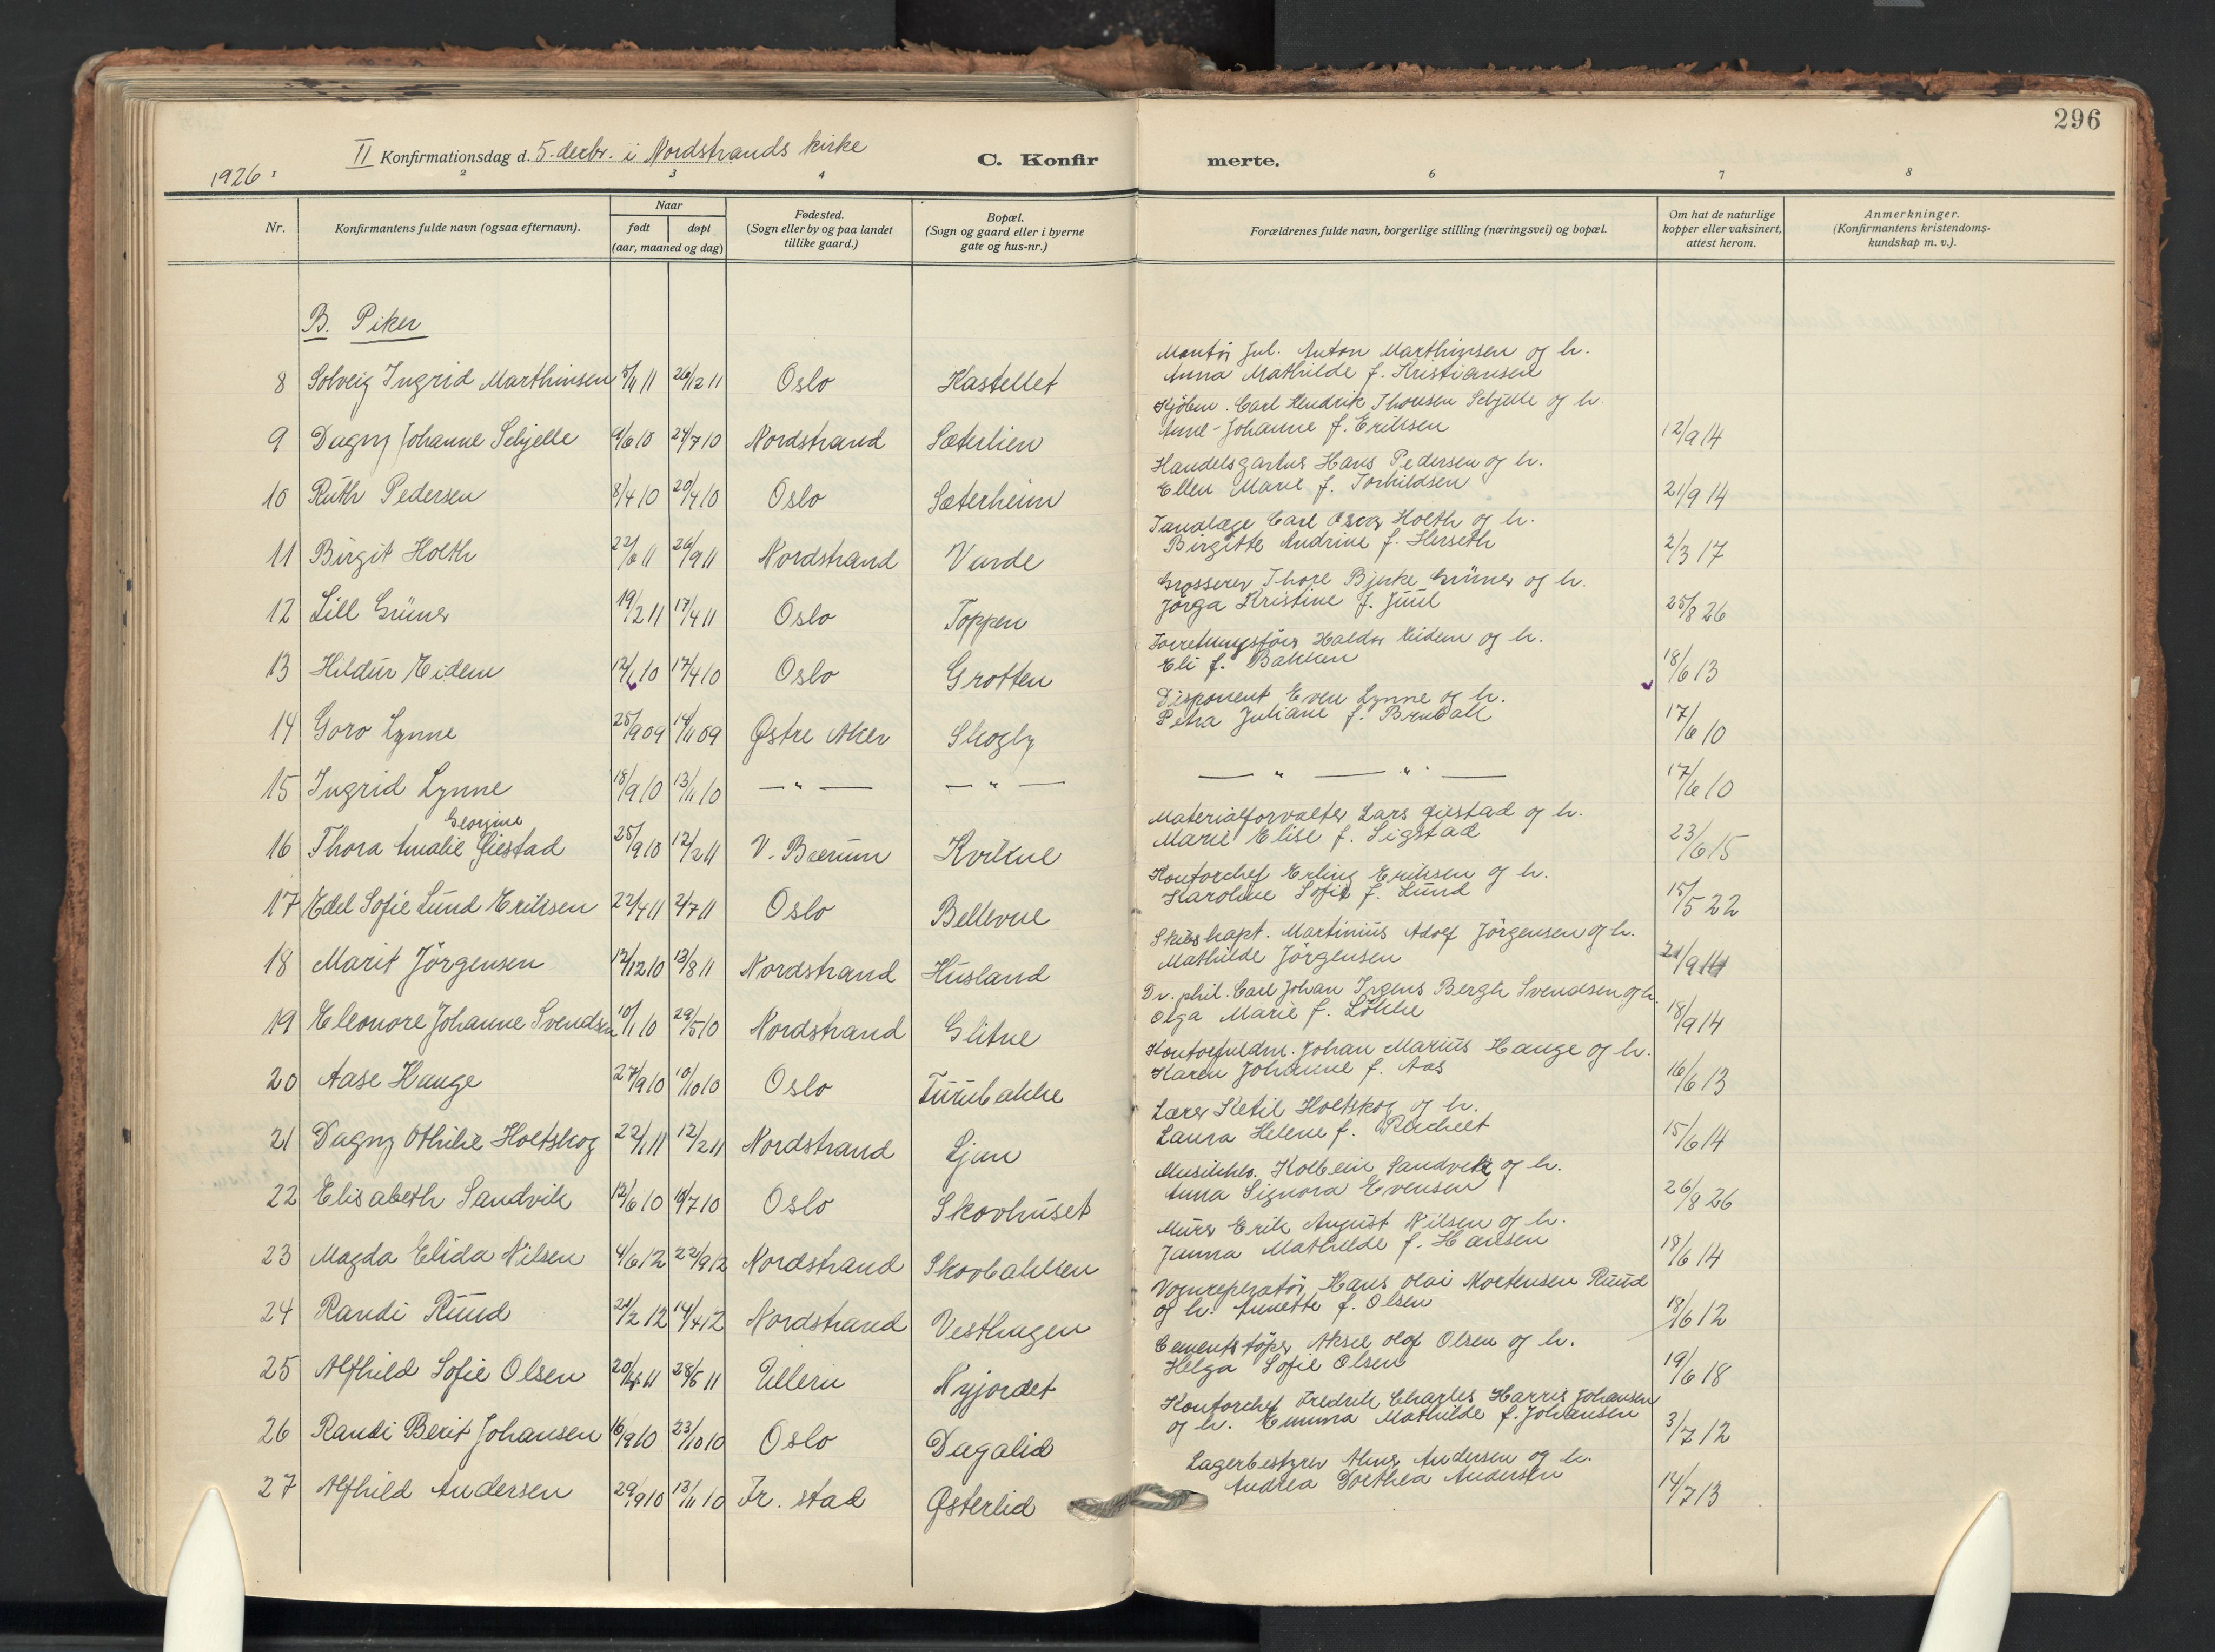 296
1926:
II Konfirmationsdag d. 5. decbr. i Nordstrands kirke
C. Konfir
merte.
2 3 4 6 7 8
Nr.
Konfirmantens fulde navn (ogsaa efternavn).
Naar
født døpt
(aar, maaned og dag)
Fødested.
(Sogn eller by og paa landet
tillike gaard.)
Bopæl.
(Sogn og gaard eller i byerne
gate og hus-nr.)
Forældrenes fulde navn, borgerlige stilling (næringsvei) og bopæl.
Om hat de naturlige
kopper eller vaksinert,
attest herom.
Anmerkninger.
(Konfirmantens kristendoms-
kundskap m. v.).
B. Piker
Montör Jul. Anton Marthinsen og h.
8 Solveig Ingrid Marthinsen 5/11 11 26/12 11 Oslo Kastellet Anna Mathilde f. Kristiansen
Kjöbm. Carl Hendrik Thoresen Schjelle og h.
9 Dagny Johanne Schjelle 9/6 10 24/7 10 Nordstrand Sæterlien Anne-Johanne f. Eriksen 12/9 14
Handelsgartner Hans Pedersen og h.
10 Ruth Pedersen 8/4 10 20/4 10 Oslo Sæterheim Ellen Marie f. Torkildsen 21/9 14
Tandlæge Carl Oscar Holth og h.
11 Birgit Holth 22/6 11 26/9 11 Nordstrand Varde Birgitte Andrine f. Herseth 2/3 17
Grosserer Thore Bjerke Grüner og h.
12 Lill Grüner 19/2 11 17/4 11 Oslo Toppen Jörga Kristine f. Juul 25/8 26
Forretningsförer Haldor Eidem og h.
13 Hildur Eidem 12/1 10 17/4 10 Oslo Grotten Eli f. Bakken 18/6 13
Disponent Even Lynne og h.
14 Goro Lynne 25/9 09 14/11 09 Østre Aker Skogly Petra Juliane f. 17/6 10
15 Ingrid Lynne 18/9 10 13/11 10 — " — — " — — " — " — 17/6 10
Materialforvalter Lars Giestad og h.
Georgine
16 Thora Amalie Giestad 25/9 10 12/2 11 V. Bærum Kvikne Marie Elise f. Sigstad 23/6 15
Kontorchef Erling Eriksen og h.
17 Edel Sofie Lund Eriksen 22/4 11 2/7 11 Oslo Bellevue Karoline Sofie f. Lund 15/5 22
Skibskapt. Martinius Adolf Jörgensen og h.
18 Marit Jörgensen 12/12 10 13/8 11 Nordstrand Husland Mathilde Jörgensen 21/9 14
Dr. phil. Carl Johan Irgens Bergh Svendsen og h.
19 Eleonore Johanne Svendsen 10/1 10 29/5 10 Nordstrand Glitne Olga Marie f. Lökke 18/9 14
Kontorfuldm. Johan Marius Hauge og h.
20 Aase Hauge 27/9 10 10/10 10 Oslo Furubakke Karen Johanne f. Aas 16/6 13
Lærer Ketil Holtskog og h.
21 Dagny Othilie Holtskog 22/1 11 12/2 11 Nordstrand Ljan Laura Helene f. 15/6 14
Musikhl. Kolbein Sandvik og h.
22 Elisabeth Sandvik 12/6 10 10/7 10 Oslo Skovhuset Anna Signora Evensen 26/8 26
Murer Erik August Nilsen og h.
23 Magda Elida Nilsen 4/6 12 22/9 12 Nordstrand Skovbakken Janna Mathilde f. Hansen 18/6 14
Vognreperatör Hans Olai Mortensen Ruud
24 Randi Ruud 21/2 12 14/4 12 Nordstrand Vesthagen og h. Annette f. Olsen 18/6 12
Cementstöper Aksel Olaf Olsen og h.
25 Alfhild Sofie Olsen 20/4 11 28/5 11 Ullern Nyjordet Helga Sofie Olsen 19/6 18
Kontorchef Fredrik Charles Harris Johansen
26 Randi Berit Johansen 16/9 10 23/10 10 Oslo Dagalid og h. Emma Mathilde f. Johansen 3/7 12
Lagerbestyrer Andersen og h.
27 Alfhild Andersen 29/9 10 13/11 10 Fr. stad Østerlid Andrea Dorthea Andersen 14/7 13